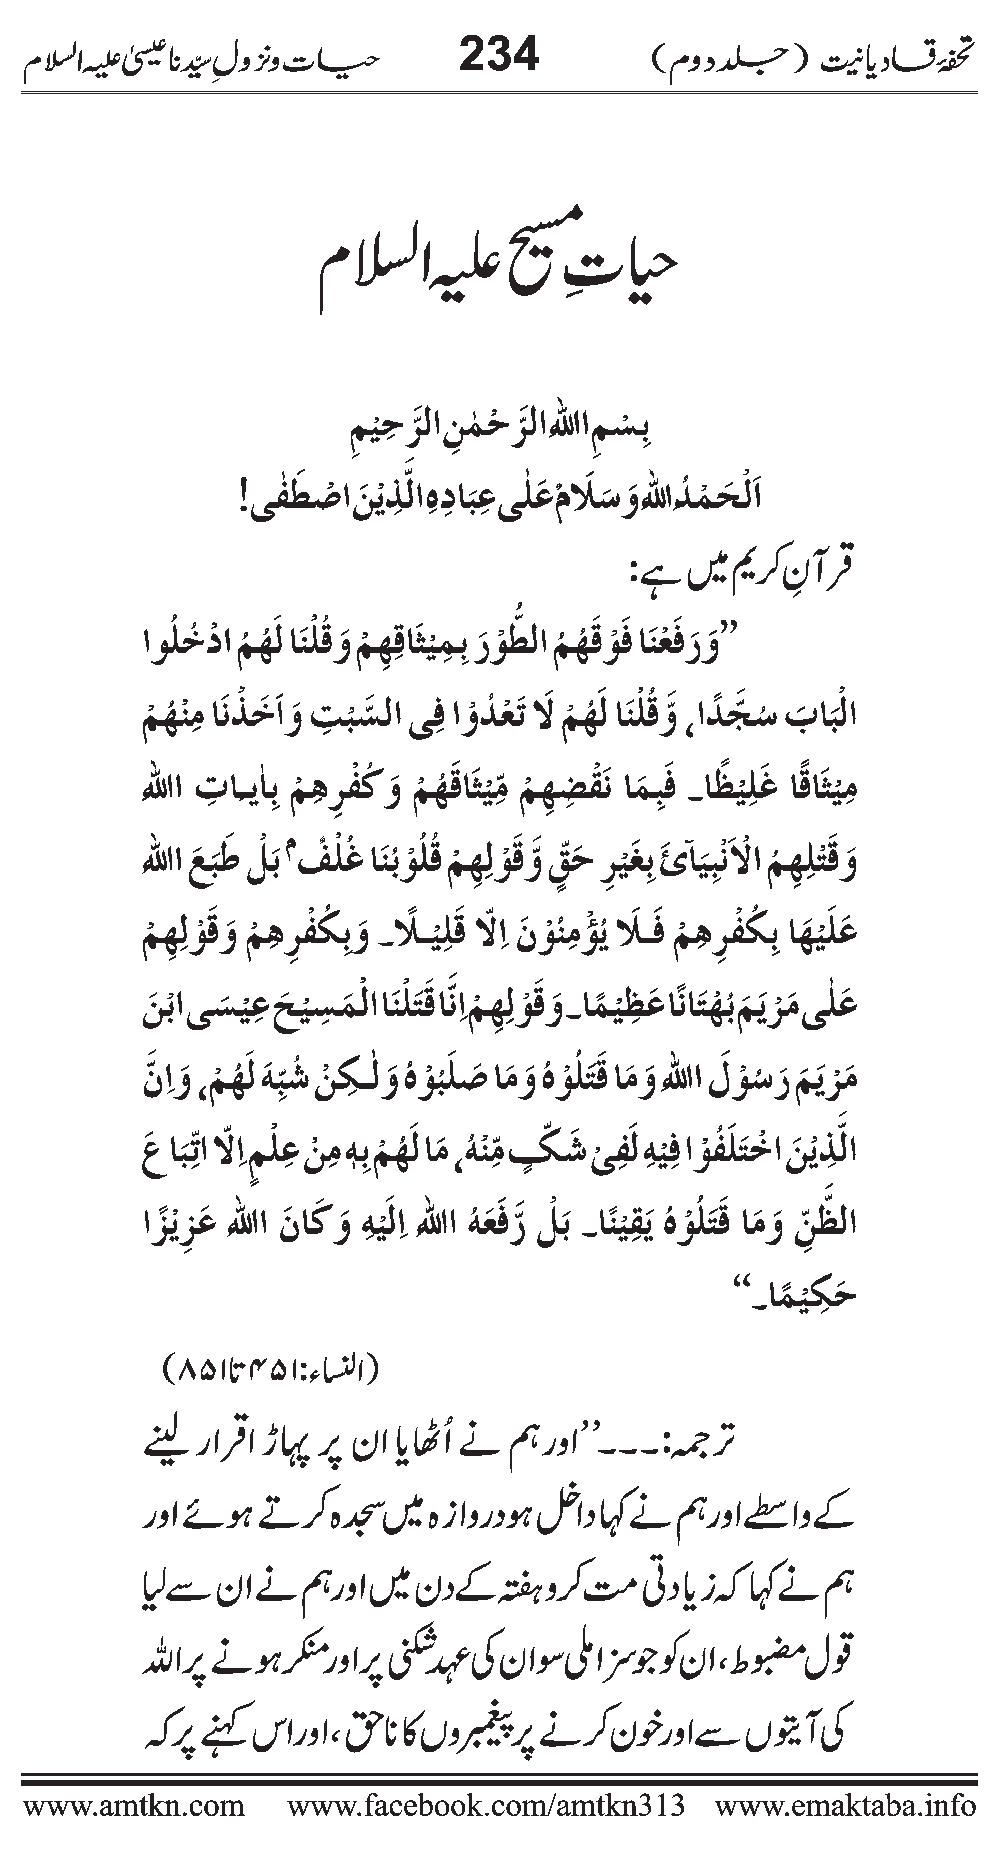 تحفۂ قادیانیت (جلد دوم) 234 حیات و نزولِ سیّدنا عیسیٰ علیہ السلام
حیاتِ مسیح علیہ السلام
بِسْمِ اﷲِ الرَّحْمٰنِ الرَّحِیْمِ
اَلْحَمْدُ ﷲِ وَ سَلَامٌ عَلٰی عِبَادِہِ الَّذِیْنَ اصْطَفٰی!
قرآنِ کریم میں ہے:
’’وَ رَفَعْنَا فَوْقَھُمُ الطُّوْرَ بِمِیْثَاقِھِمْ وَ قُلْنَا لَھُمُ ادْخُلُوا
الْبَابَ سُجَّدًا، وَّ قُلْنَا لَھُمْ لَا تَعْدُوْا فِی السَّبْتِ وَ اَخَذْنَا مِنْھُمْ
مِیْثَاقًا غَلِیْظًا۔ فَبِمَا نَقْضِھِمْ مِّیْثَاقَھُمْ وَ کُفْرِھِمْ بِاٰیٰاتِ اﷲِ
وَ قَتْلِھِمُ الْاَنْبِیَآئَ بِغَیْرِ حَقٍّ وَّ قَوْلِھِمْ قُلُوْبُنَا غُلْفٌ ۭ بَلْ طَبَعَ اﷲُ
عَلَیْھَا بِکُفْرِھِمْ فَلَا یُؤْمِنُوْنَ اِلَّا قَلِیْلًا۔ وَبِکُفْرِھِمْ وَ قَوْلِھِمْ
عَلٰی مَرْیَمَ بُھْتَانًا عَظِیْمًا۔ وَ قَوْلِھِمْ اِنَّا قَتَلْنَا الْمَسِیْحَ عِیْسَی ابْنَ
مَرْیَمَ رَسُوْلَ اﷲِ وَ مَا قَتَلُوْہُ وَ مَا صَلَبُوْہُ وَ لٰکِنْ شُبِّہَ لَھُمْ، وَ اِنَّ
الَّذِیْنَ اخْتَلَفُوْا فِیْہِ لَفِیْ شَکٍّ مِّنْہُ، مَا لَھُمْ بِہٖ مِنْ عِلْمٍ اِلَّا اتِّبَاعَ
الظَّنِّ وَ مَا قَتَلُوْہُ یَقِیْنًا۔ بَلْ رَّفَعَہُ اﷲُ اِلَیْہِ وَ کَانَ اﷲُ عَزِیْزًا
حَکِیْمًا۔‘‘
(النساء:۴۵۱تا۸۵۱)
ترجمہ:۔۔۔’’اور ہم نے اُٹھایا ان پر پہاڑ اقرار لینے
کے واسطے اور ہم نے کہا داخل ہو دروازہ میں سجدہ کرتے ہوئے اور
ہم نے کہا کہ زیادتی مت کرو ہفتہ کے دن میں اور ہم نے ان سے لیا
قول مضبوط، ان کو جو سزا ملی سو ان کی عہد شکنی پر اور منکر ہونے پر اللہ
کی آیتوں سے اور خون کرنے پر پیغمبروں کا ناحق، اور اس کہنے پر کہ
www.amtkn.com www.facebook.com/amtkn313 www.emaktaba.info